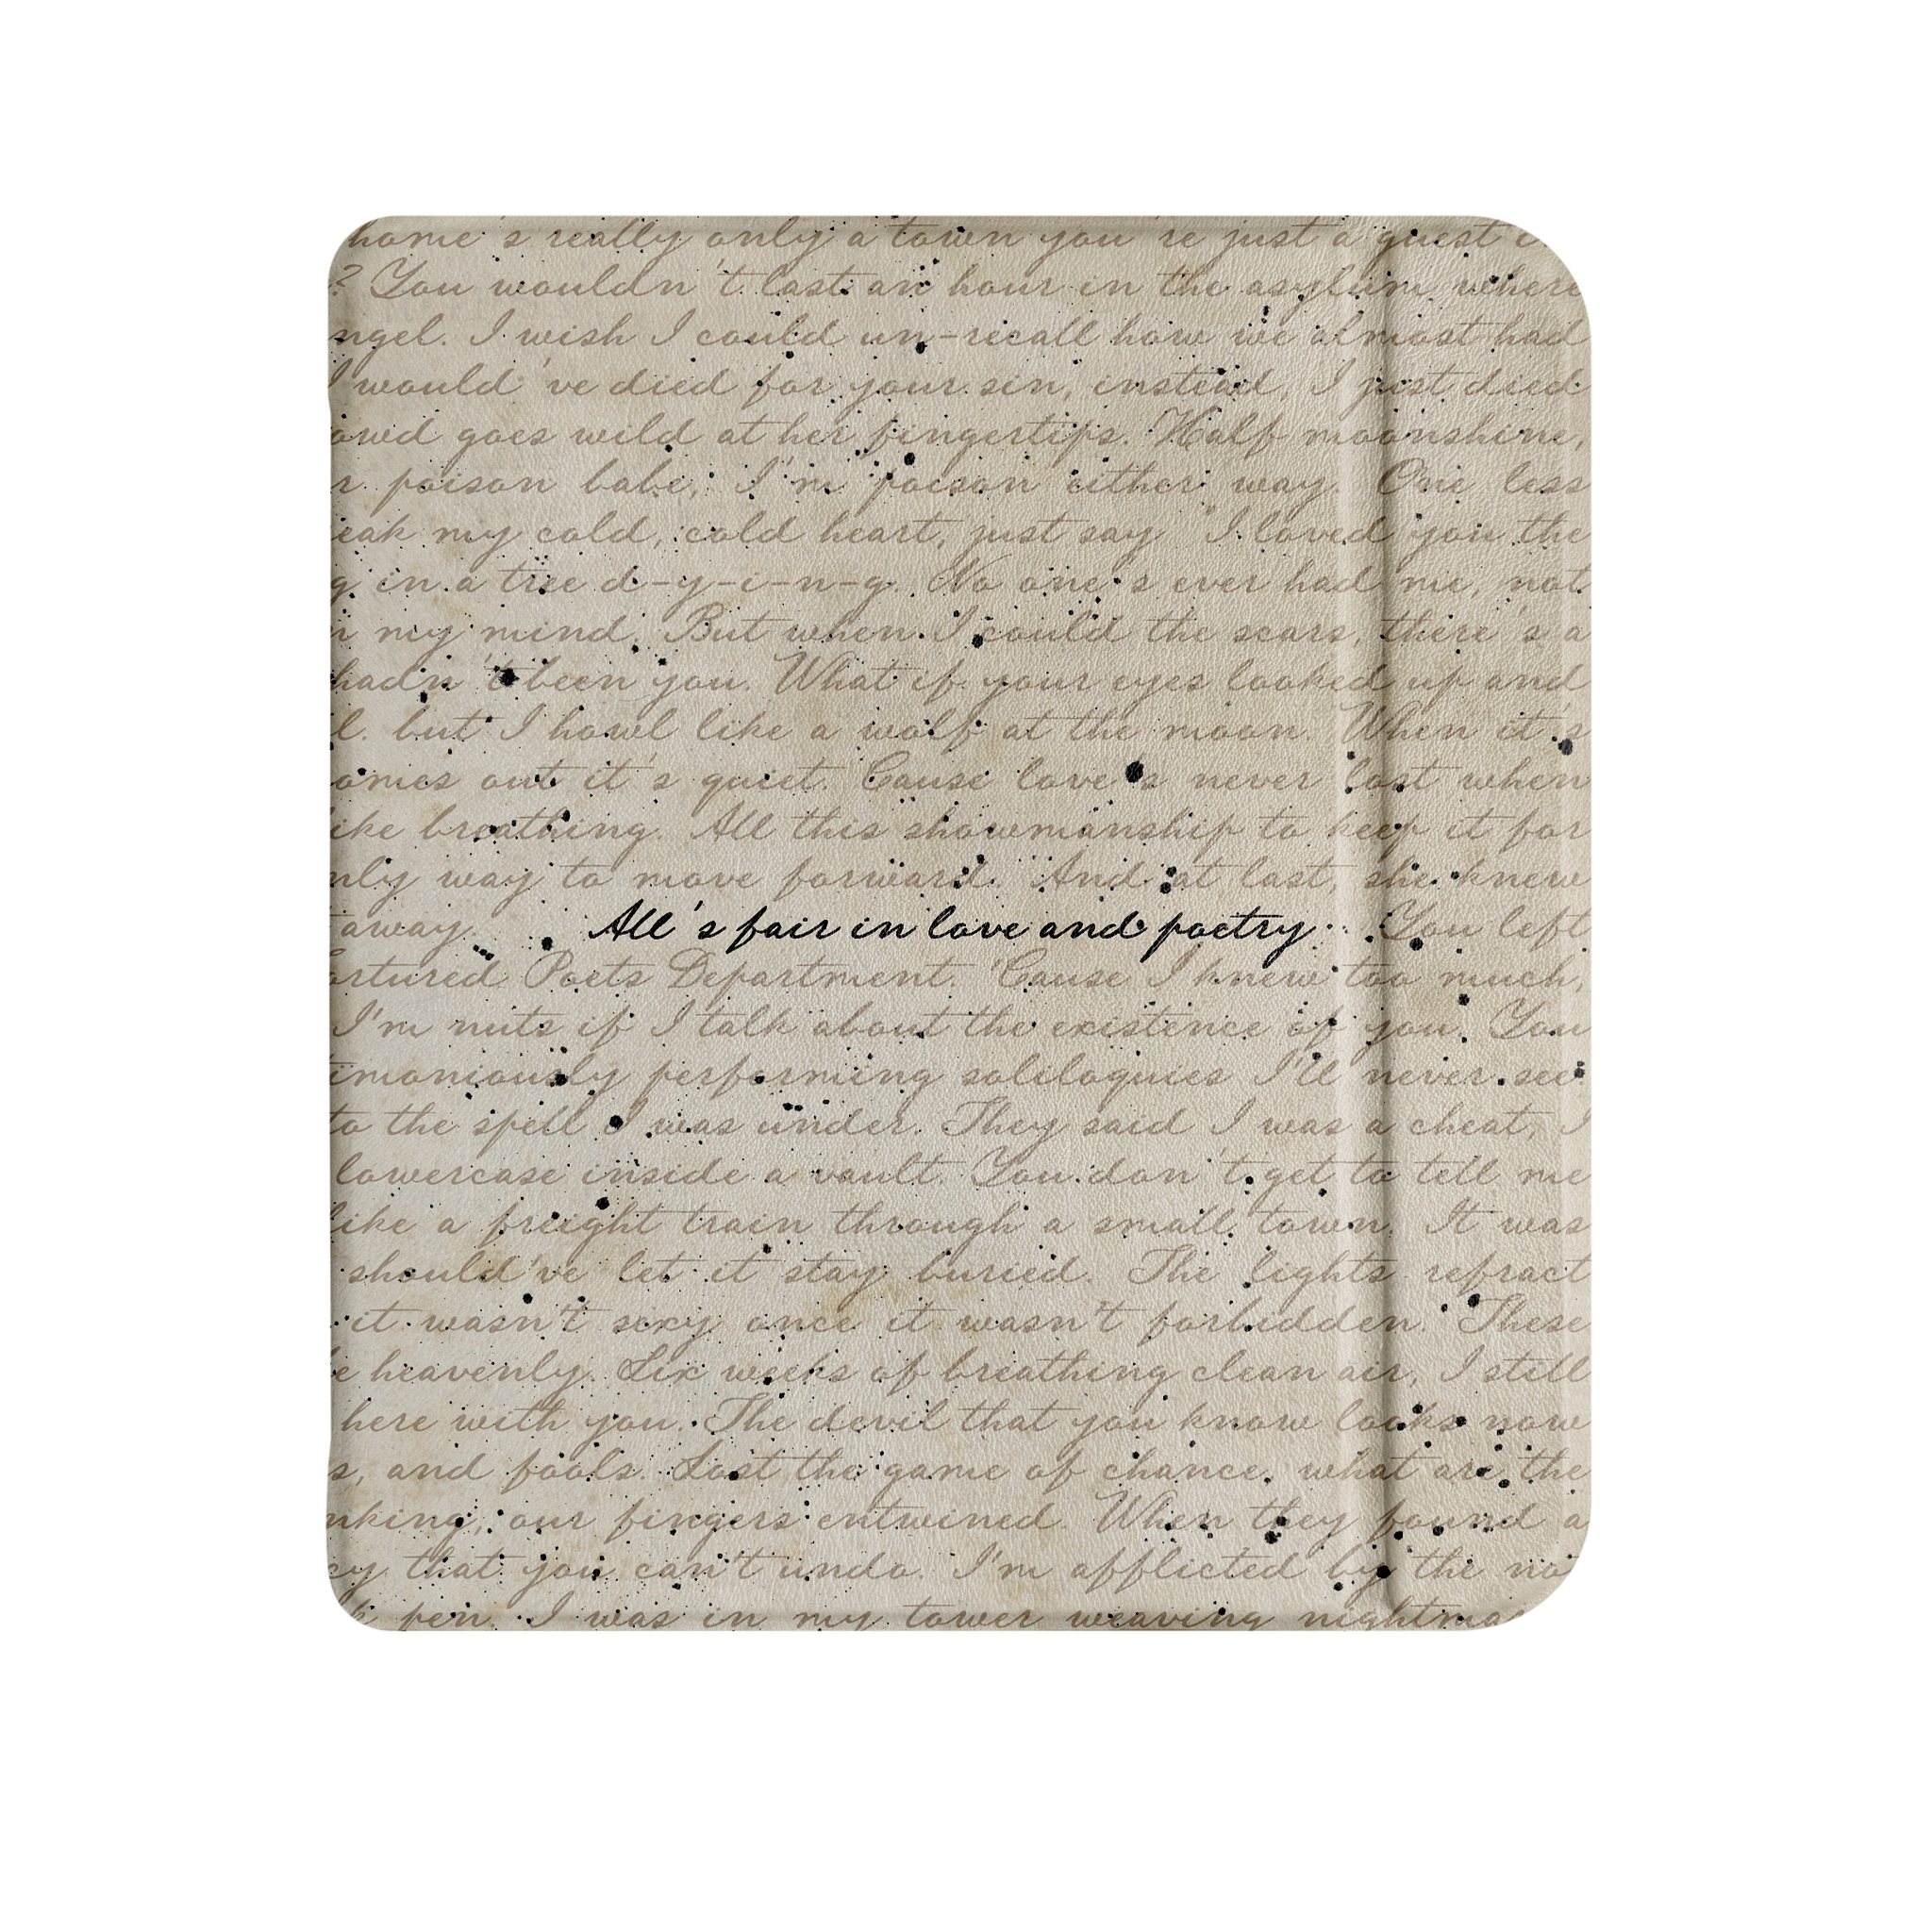 home's really only a town you're just a guest i
? You wouldn't last an hour in the asylum where
ngel. I wish I could un-recall how we almost had
I would've died for your sin, instead, I just died
owd goes wild at her fingertips. Half moonshine,
r poison babe, I'm poison either way. One less
eak my cold, cold heart, just say "I loved you the
g in a tree d-y-i-n-g. No one's ever had me, not
n my mind. But when I could the scars, there's a
hadn't been you. What if your eyes looked up and
l. but I howl like a wolf at the moon. When it's
omes out it's quiet. Cause love's never lost when
ike breathing. All this showmanship to keep it for
nly way to move forward. And at last, she knew
away. All's fair in love and poetry You left
ortured Poets Department. 'Cause I knew too much,
I'm nuts if I talk about the existence of you. You
imoniously performing soliloquies I'll never see
to the spell I was under. They said I was a cheat, I
lowercase inside a vault. You don't get to tell me
like a freight train through a small town. It was
should've let it stay buried. The lights refract
it wasn't sexy once it wasn't forbidden. These
e heavenly. Six weeks of breathing clean air, I still
here with you. The devil that you know looks now
s, and fools. Lost the game of chance, what are the
nking, our fingers entwined. When they found a
cy that you can't undo. I'm afflicted by the not
k pen. I was in my tower weaving nightma